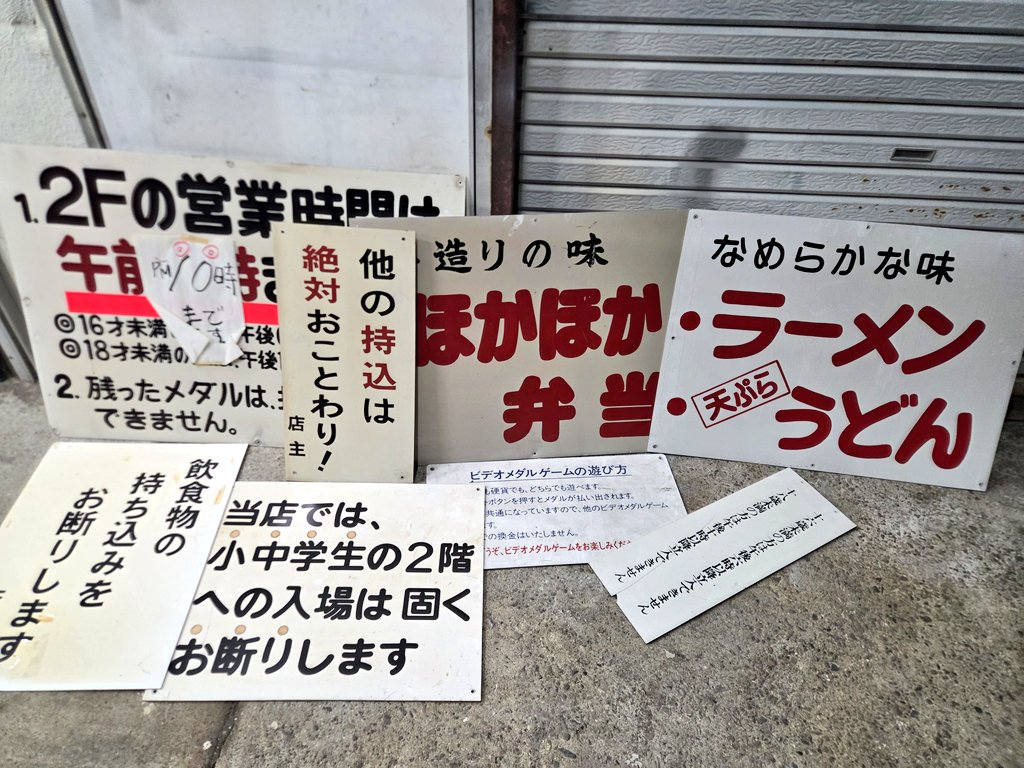 1. 2Fの営業時間は
午前
PM 10時
まで
◎16才未満
午後
◎18才未満の
午後
2. 残ったメダルは、
できません。
他の持込は
絶対おことわり!
店主
造りの味
ほかほか
弁当
なめらかな味
・ラーメン
・天ぷらうどん
飲食物の
持ち込みを
お断りします
す
当店では、
小中学生の2階
への入場は固く
お断りします
ビデオメダルゲームの遊び方
も硬貨でも、どちらでも遊べます。
ボタンを押すとメダルが払い出されます。
共通になっていますので、他のビデオメダルゲーム
す。
の換金はいたしません。
うぞ、ビデオメダルゲームをお楽しみくだ